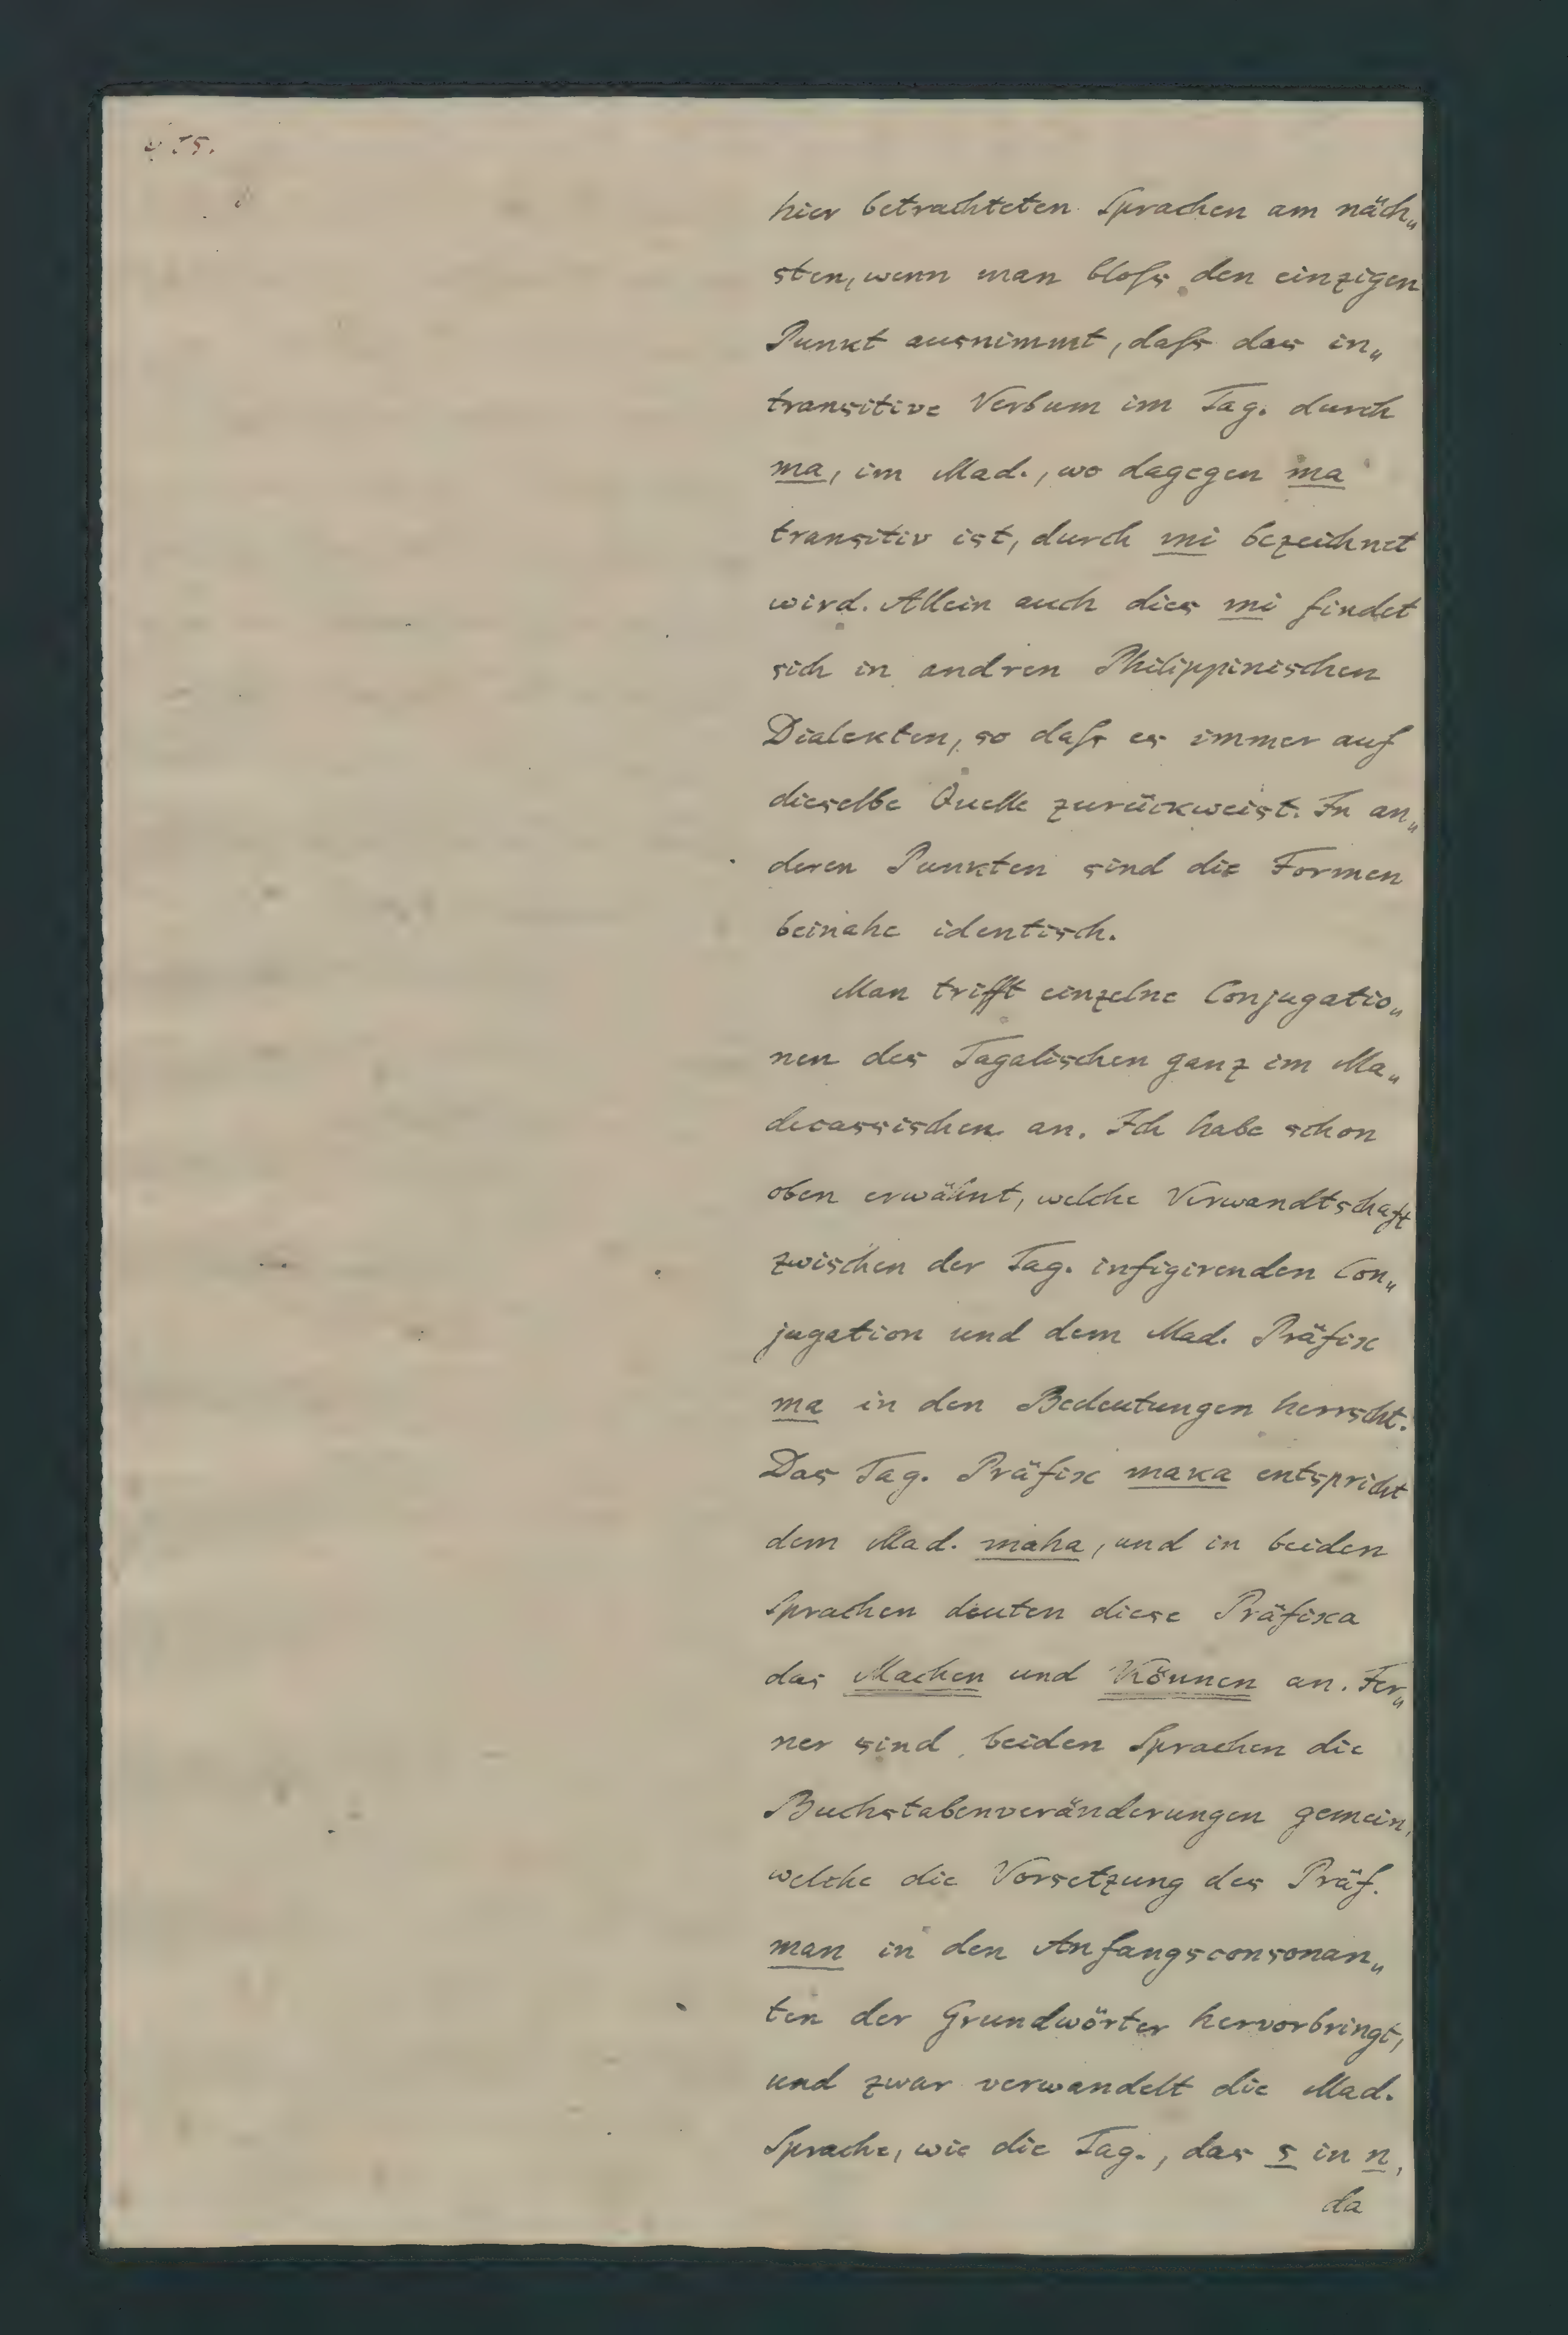 hier betrachteten Sprachen am näch„
sten, wenn man bloſs den einzigen
Punkt ausnimmt, daſs das in„
transitive Verbum im Tag. durch
ma, im Mad., wo dagegen ma
transitiv ist, durch mi bezeichnet
wird. Allein auch dies mi findet
sich in andren Philippinischen
Dialekten, so daſs es immer auf
dieselbe Quelle zurückweist. In an„
deren Punkten sind die Formen
beinahe identisch.
Man trifft einzelne Conjugatio„
nen des Tagalischen ganz im Ma„
decassischen an. Ich habe schon
oben erwähnt, welche Verwandtschaft
zwischen der Tag. infigirenden Con„
jugation und dem Mad. Präfix
ma in den Bedeutungen herrscht.
Das Tag. Präfix maka entspricht
dem Mad. maha, und in beiden
Sprachen deuten diese Präfixa
das Machen und Können an. Fer„
ner sind beiden Sprachen die
Buchstabenveränderungen gemein,
welche die Vorsetzung des Präf.
man in den Anfangsconsonan„
ten der Grundwörter hervorbringt,
und zwar verwandelt die Mad.
Sprache, wie die Tag., das s in n,
da